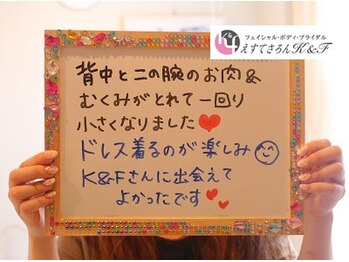 フェイシャル・ボディ・ブライダル
えすてさろんK&F
背中と二の腕のお肉&
むくみがとれて一回り
小さくなりました
ドレス着るのが楽しみ
K&Fさんに出会えて
よかったです